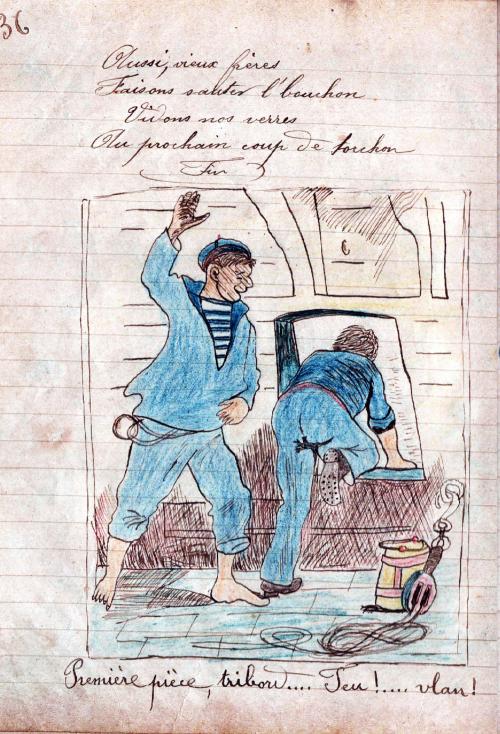 36
Aussi, vieux frères
Faisons sauter l'bouchon
Vidons nos verres
Au prochain coup de torchon
Fin
Première pièce, tribord.... Feu!.... vlan!